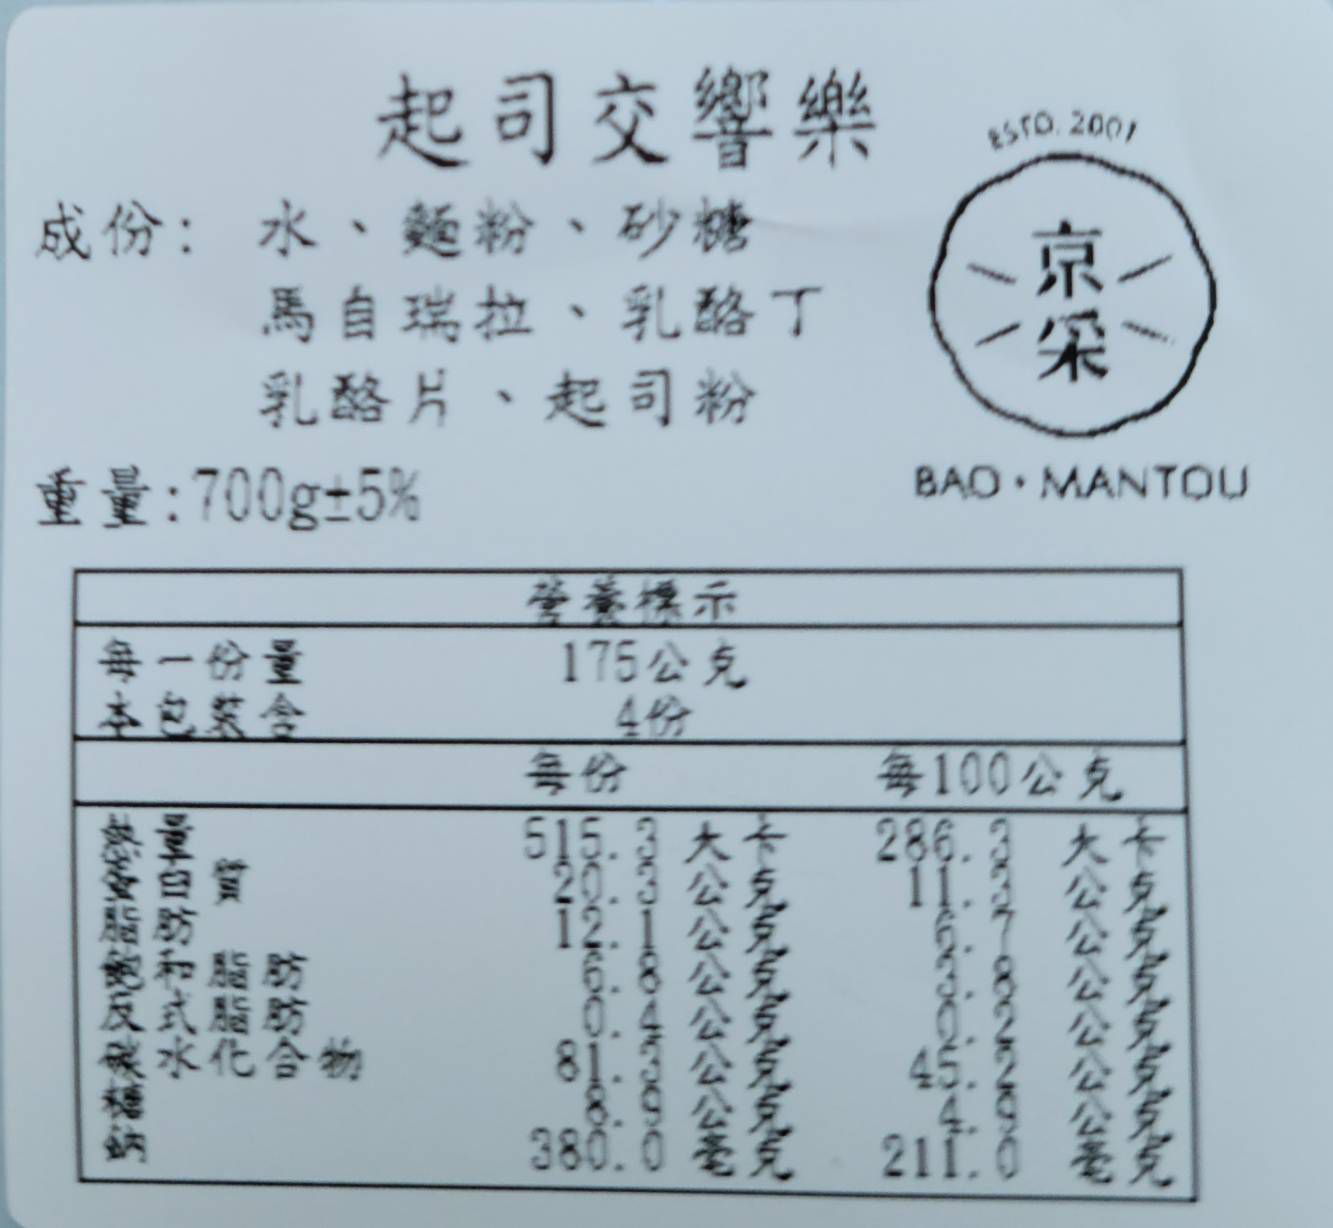 起司交響樂
ESTD. 2001
京采
BAO・MANTOU
成份: 水、麵粉、砂糖
馬自瑞拉、乳酪丁
乳酪片、起司粉
重量:700g±5%
營養標示
每一份量 175公克
本包裝含 4份
每份 每100公克
熱量 515.3 大卡 286.3 大卡
蛋白質 20.3 公克 11.3 公克
脂肪 12.1 公克 6.7 公克
飽和脂肪 6.8 公克 3.8 公克
反式脂肪 0.4 公克 0.2 公克
碳水化合物 81.3 公克 45.2 公克
糖 8.9 公克 4.9 公克
鈉 380.0 毫克 211.0 毫克